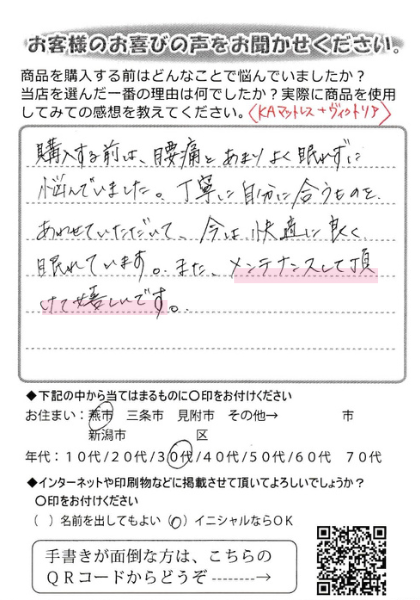 お客様のお喜びの声をお聞かせください。
商品を購入する前はどんなことで悩んでいましたか？
当店を選んだ一番の理由は何でしたか？実際に商品を使用
してみての感想を教えてください。〈KAマットレス+ヴィクトリア〉
購入する前は、腰痛とあまりよく眠れずに
悩んでいました。丁寧に自分に合うものを、
あわせていただいて、今は、快適に良く
眠れています。また、メンテナンスして頂
けて嬉しいです。
◆下記の中から当てはまるものに〇印をお付けください
お住まい：燕市　三条市　見附市　その他→　　　市
新潟市　　　　　区
年代：１０代/２０代/３０代/４０代/５０代/６０代　７０代
◆インターネットや印刷物などに掲載させて頂いてよろしいでしょうか？
〇印をお付けください
（　）名前を出してもよい（〇）イニシャルならＯＫ
手書きが面倒な方は、こちらの
ＱＲコードからどうぞ--------→